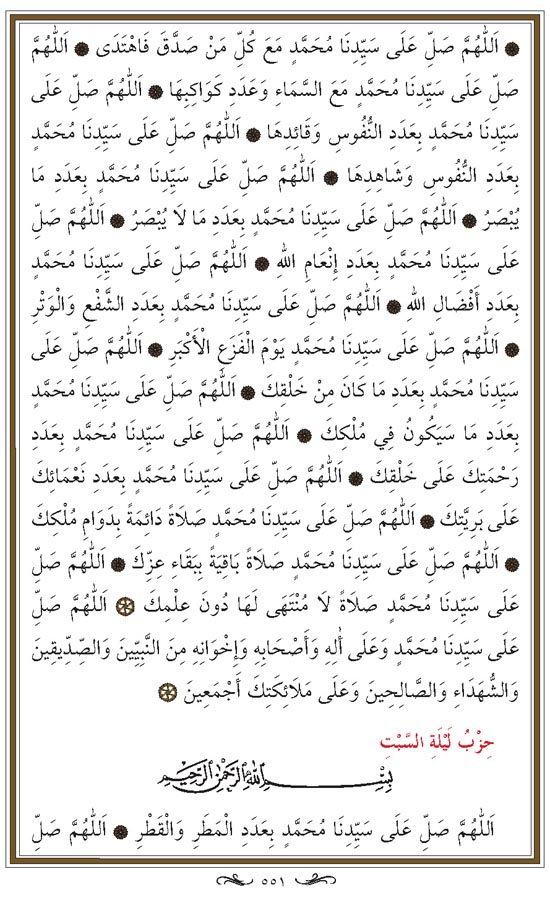 ❁ اَللّٰهُمَّ صَلِّ عَلَى سَيِّدِنَا مُحَمَّدٍ مَعَ كُلِّ مَنْ صَدَّقَ فَاهْتَدَى ❁ اَللّٰهُمَّ
صَلِّ عَلَى سَيِّدِنَا مُحَمَّدٍ مَعَ السَّمَاءِ وَعَدَدِ كَوَاكِبِهَا ❁ اَللّٰهُمَّ صَلِّ عَلَى
سَيِّدِنَا مُحَمَّدٍ بِعَدَدِ النُّفُوسِ وَقَائِدِهَا ❁ اَللّٰهُمَّ صَلِّ عَلَى سَيِّدِنَا مُحَمَّدٍ
بِعَدَدِ النُّفُوسِ وَشَاهِدِهَا ❁ اَللّٰهُمَّ صَلِّ عَلَى سَيِّدِنَا مُحَمَّدٍ بِعَدَدِ مَا
يُبْصَرُ ❁ اَللّٰهُمَّ صَلِّ عَلَى سَيِّدِنَا مُحَمَّدٍ بِعَدَدِ مَا لَا يُبْصَرُ ❁ اَللّٰهُمَّ صَلِّ
عَلَى سَيِّدِنَا مُحَمَّدٍ بِعَدَدِ إِنْعَامِ اللهِ ❁ اَللّٰهُمَّ صَلِّ عَلَى سَيِّدِنَا مُحَمَّدٍ
بِعَدَدِ أَفْضَالِ اللهِ ❁ اَللّٰهُمَّ صَلِّ عَلَى سَيِّدِنَا مُحَمَّدٍ بِعَدَدِ الشَّفْعِ وَالْوَتْرِ
❁ اَللّٰهُمَّ صَلِّ عَلَى سَيِّدِنَا مُحَمَّدٍ يَوْمَ الْفَزَعِ الْأَكْبَرِ ❁ اَللّٰهُمَّ صَلِّ عَلَى
سَيِّدِنَا مُحَمَّدٍ بِعَدَدِ مَا كَانَ مِنْ خَلْقِكَ ❁ اَللّٰهُمَّ صَلِّ عَلَى سَيِّدِنَا مُحَمَّدٍ
بِعَدَدِ مَا سَيَكُونُ فِي مُلْكِكَ ❁ اَللّٰهُمَّ صَلِّ عَلَى سَيِّدِنَا مُحَمَّدٍ بِعَدَدِ
رَحْمَتِكَ عَلَى خَلْقِكَ ❁ اَللّٰهُمَّ صَلِّ عَلَى سَيِّدِنَا مُحَمَّدٍ بِعَدَدِ نَعْمَائِكَ
عَلَى بَرِيَّتِكَ ❁ اَللّٰهُمَّ صَلِّ عَلَى سَيِّدِنَا مُحَمَّدٍ صَلَاةً دَائِمَةً بِدَوَامِ مُلْكِكَ
❁ اَللّٰهُمَّ صَلِّ عَلَى سَيِّدِنَا مُحَمَّدٍ صَلَاةً بَاقِيَةً بِبَقَاءِ عِزِّكَ ❁ اَللّٰهُمَّ صَلِّ
عَلَى سَيِّدِنَا مُحَمَّدٍ صَلَاةً لَا مُنْتَهَى لَهَا دُونَ عِلْمِكَ ❁ اَللّٰهُمَّ صَلِّ
عَلَى سَيِّدِنَا مُحَمَّدٍ وَعَلَى أٰلِهِ وَأَصْحَابِهِ وَإِخْوَانِهِ مِنَ النَّبِيِّينَ وَالصِّدِّيقِينَ
وَالشُّهَدَاءِ وَالصَّالِحِينَ وَعَلَى مَلَائِكَتِكَ أَجْمَعِينَ ❁
حِزْبُ لَيْلَةِ السَّبْتِ
بِسْمِ اللهِ الرَّحْمٰنِ الرَّحِيمِ
اَللّٰهُمَّ صَلِّ عَلَى سَيِّدِنَا مُحَمَّدٍ بِعَدَدِ الْمَطَرِ وَالْقَطْرِ ❁ اَللّٰهُمَّ صَلِّ
٥٥١